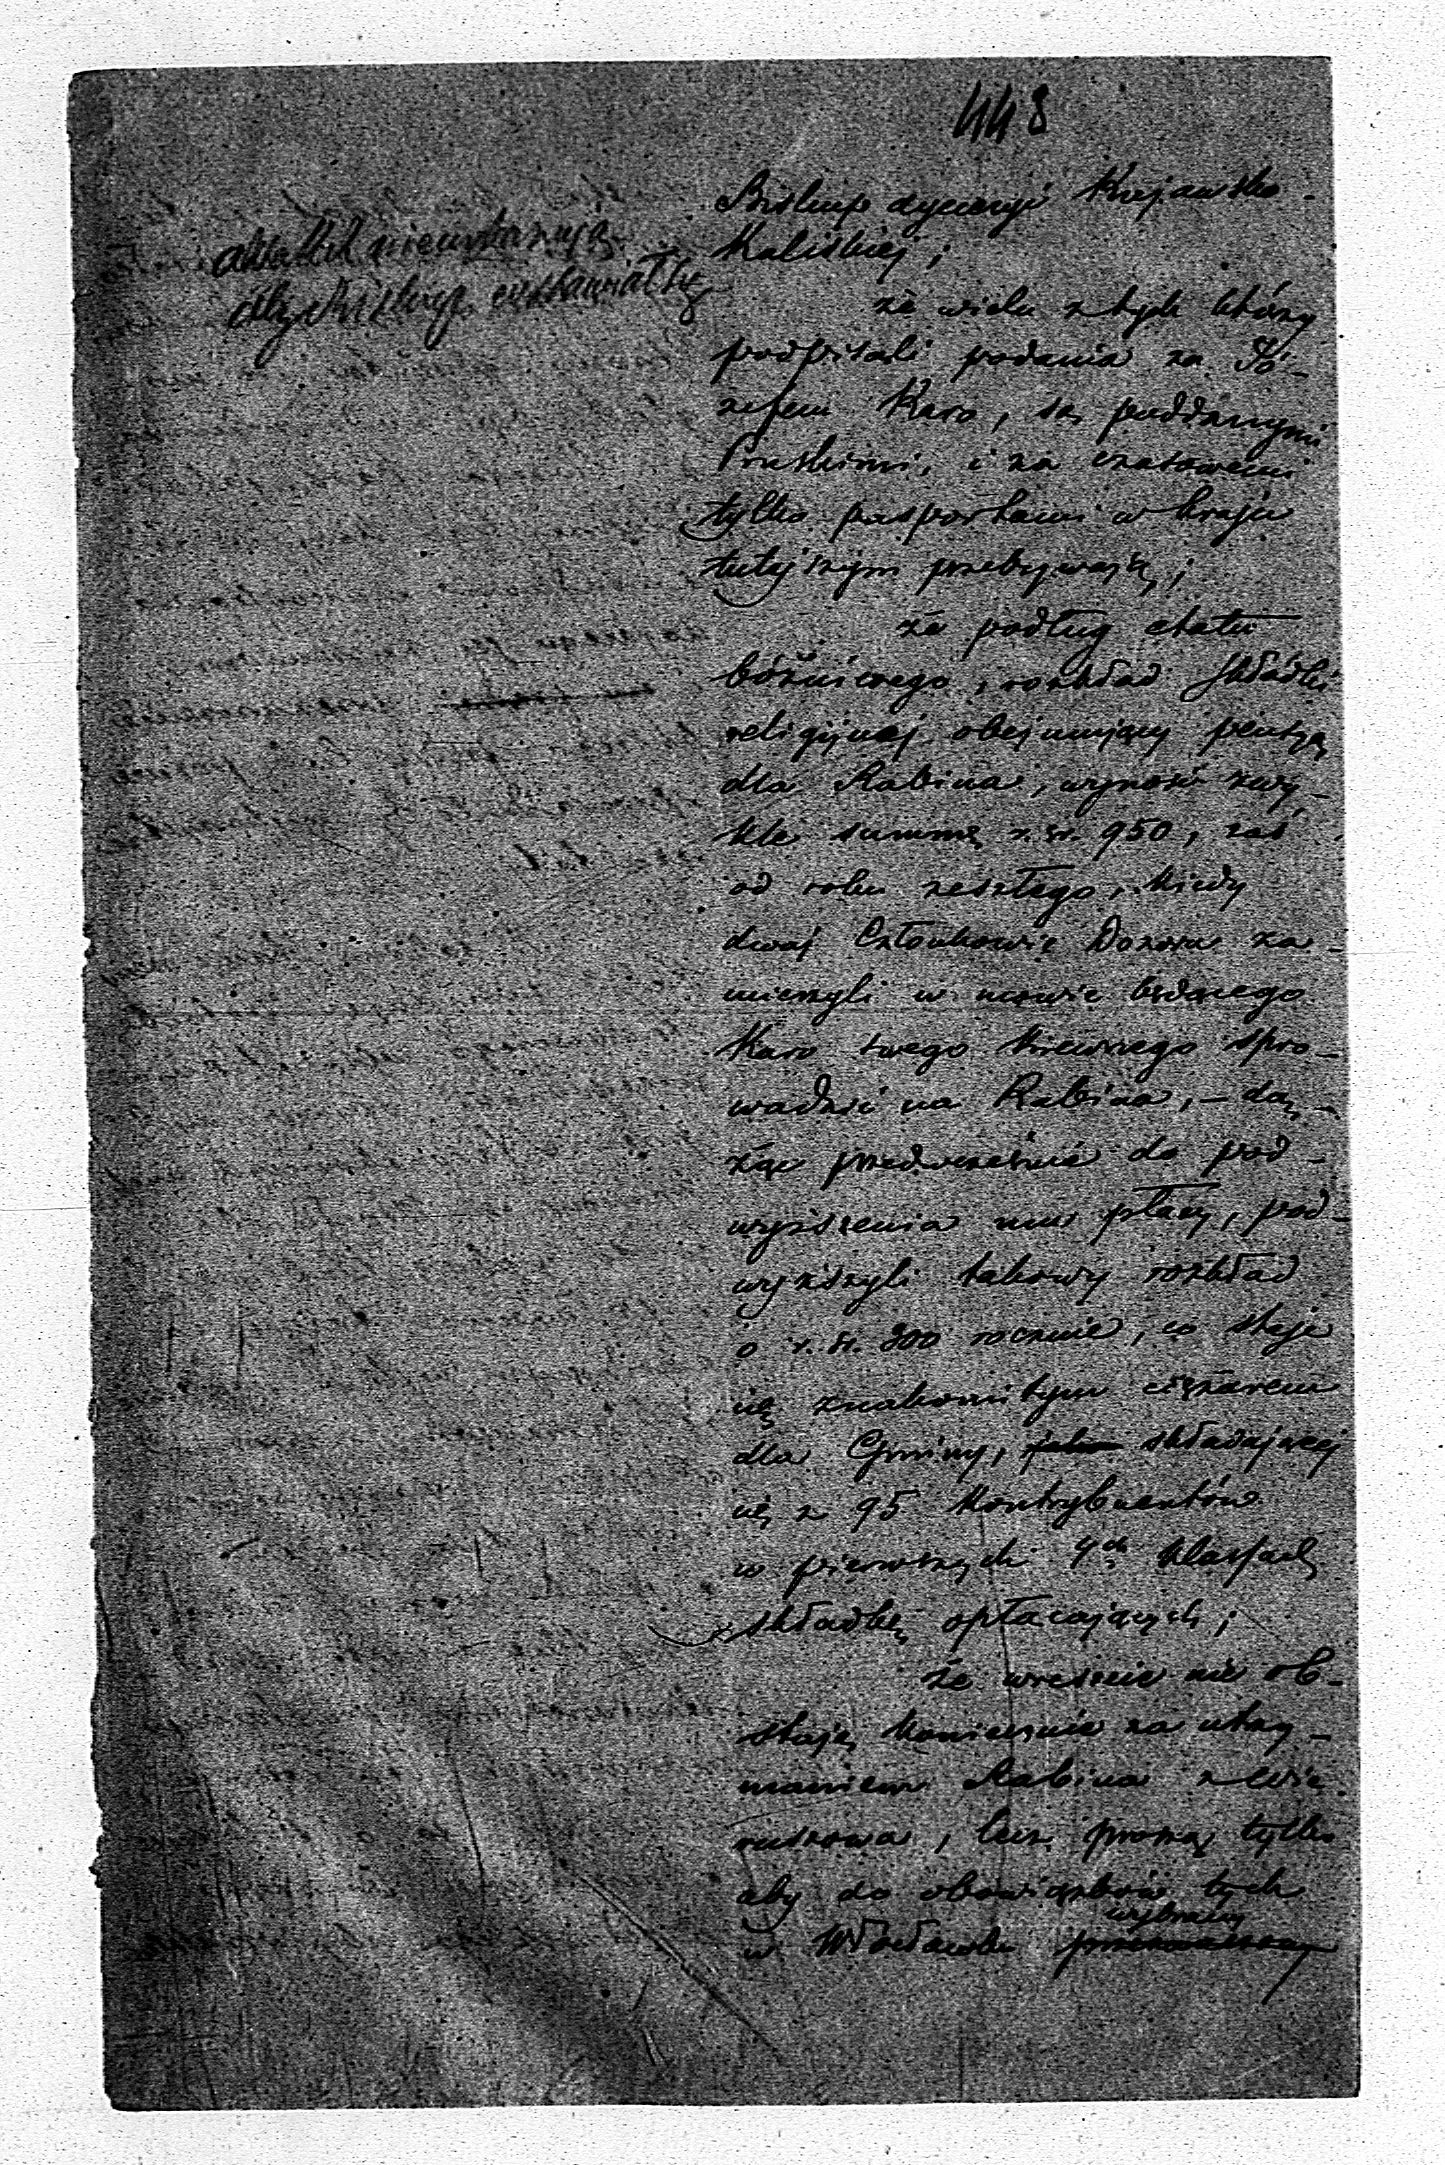 448
Biskup dyecezyi Kujawsko-
Kaliskiej;
że wielu z tych którzy
podpisali podania za Jó-
zefem Karo, są poddanymi
Pruskimi, i za czasowemi
tylko pasportami w kraju
tutejszym przebywają;
że podług etatu
bóżniczego, rozkład składki
religijnej obejmujący pensyą
dla Rabina, wynosi zwy-
kle summę r. sr. 950, zaś
od roku zeszłego, kiedy
dwaj Członkowie Dozoru za-
mierzyli w mowie będącego
Karo swego krewnego spro-
wadzić na Rabina, – dą-
żąc przedwcześnie do pod-
wyższenia mu płacy, pod-
wyższyli takowy rozkład
o r. sr. 300 rocznie, co staje
się znakomitym ciężarem
dla Gminy, składającej
się z 95 Kontrybuentów
w pierwszych 4ch klassach
składkę opłacających;
że wreszcie nie ob-
stają koniecznie za utrzy-
maniem Rabina z Wie
ruszowa, lecz proszą tylko
aby do obowiązków tych
wybrany
w Włocławku